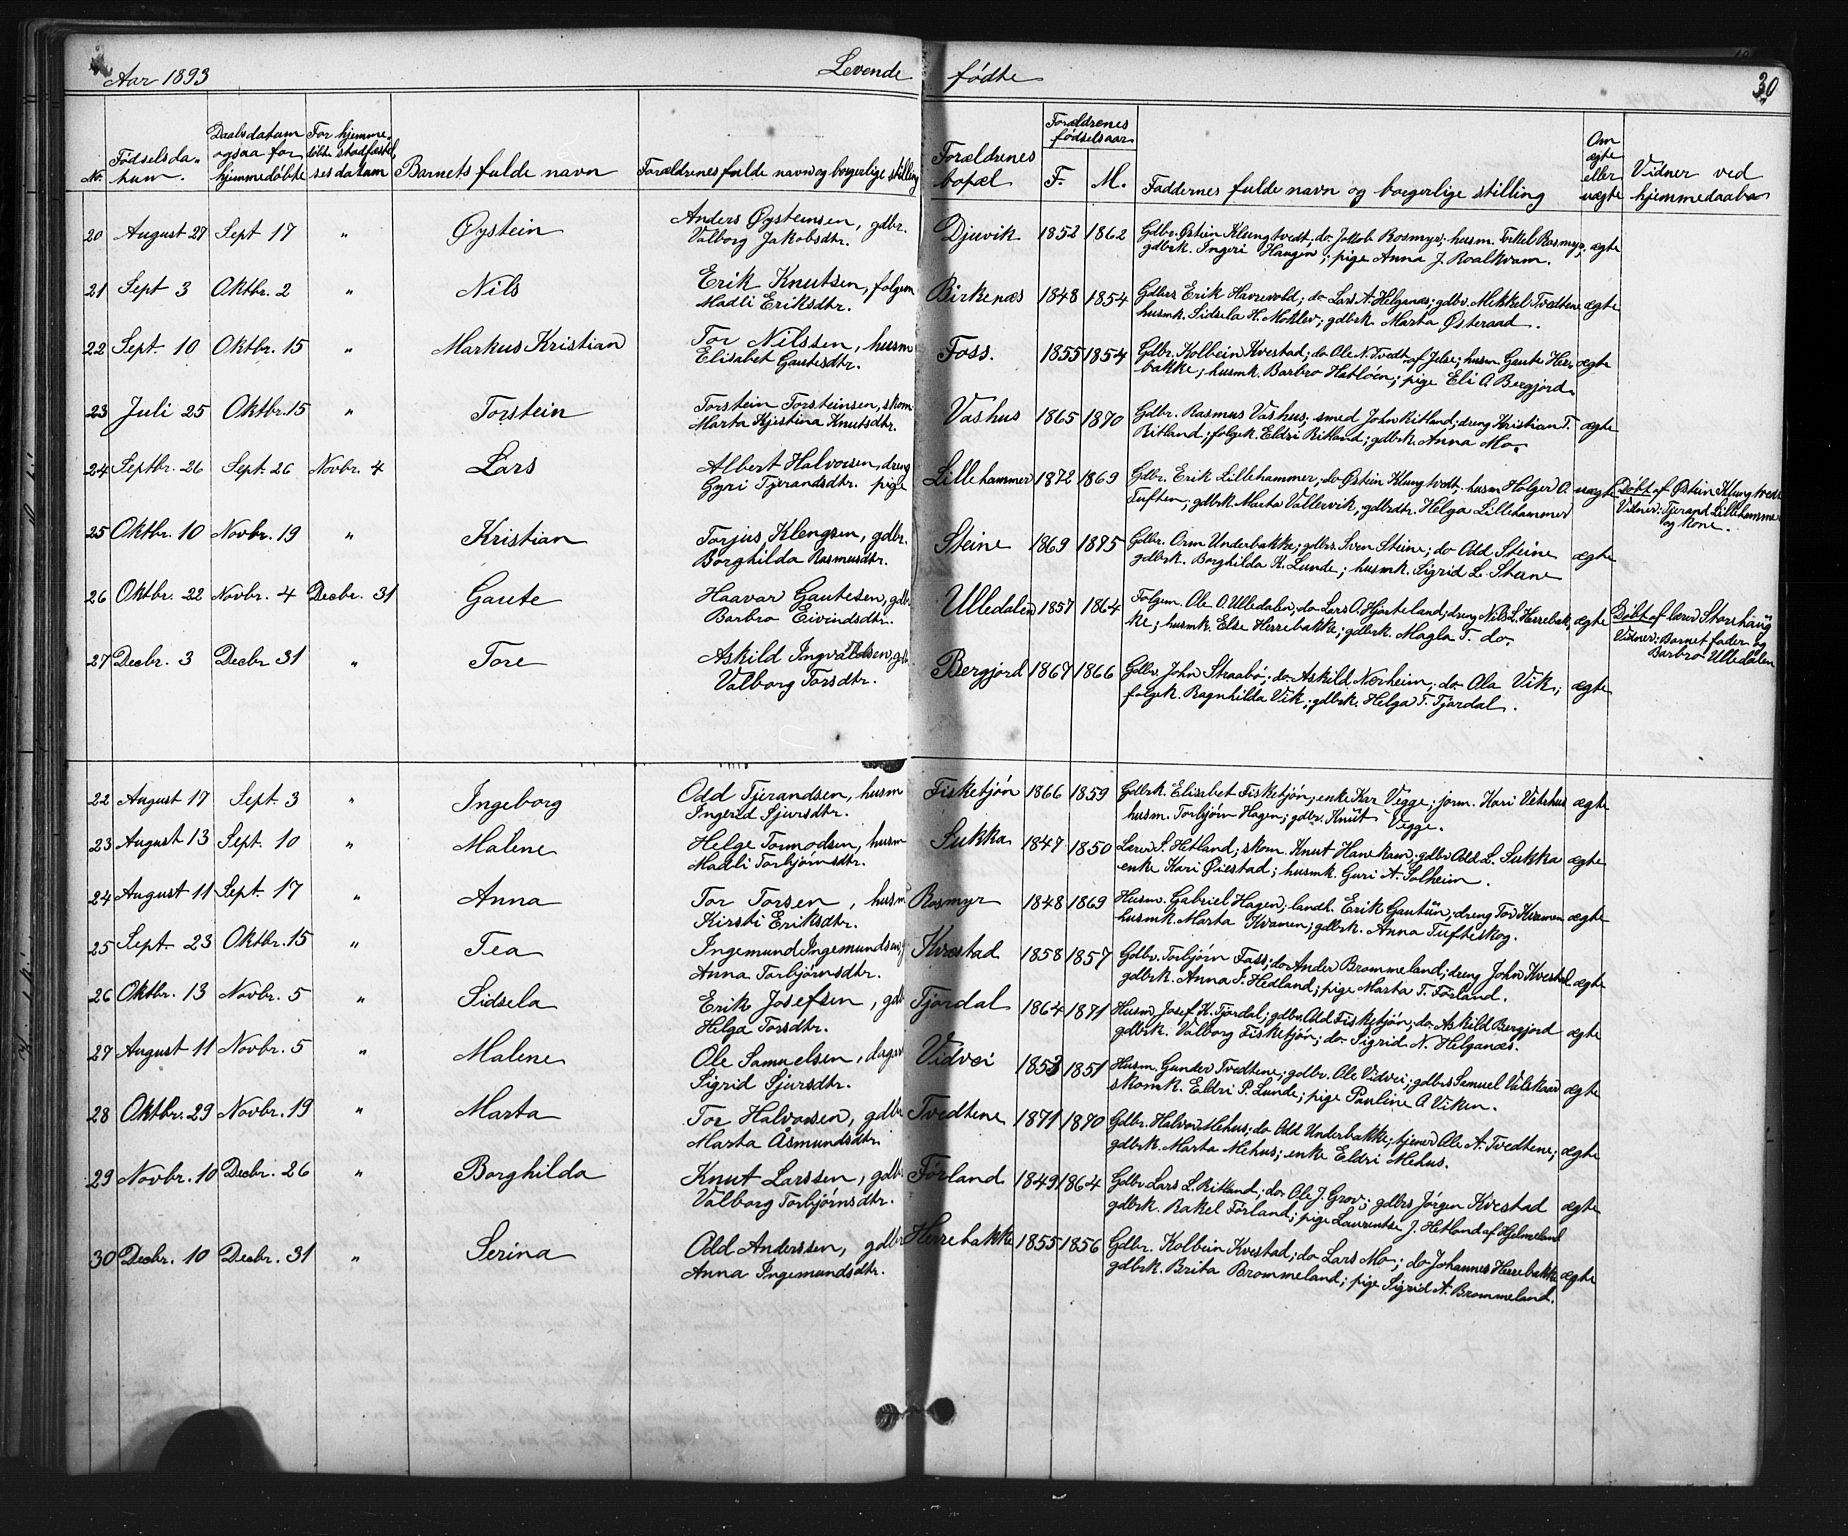 Aar 1893 Levende fødte 30
No. Fødselsda- tum. Daabsdatum ogsaa for hjemmedøbte For hjemme- døbte stadfæstel- sesdatum Barnets fulde navn Forældrenes fulde navn og borgerlige stilling Forældrenes bopæl Forældrenes fødselsaar F. M. Faddernes fulde navn og borgerlige stilling Om ægte eller uægte Vidner ved hjemmedaaben
20 August 27 Sept 17 " Øystein Anders Øysteinsen, gdbr. Djuvik 1852 1862 Gdbr. Østein Klungtvedt; do Jakob Rosmyr; husm. Torkel Rosmyr; ægte
Valborg Jakobsdtr. gdbrk. Ingeri Haugen; pige Anna J. Roalkvam.
21 Sept 3 Oktbr. 2 " Nils Erik Knutsen, folgem Birkenæs 1848 1854 Gdbrs Erik Harrevold; do Lars A. Helganæs; gdbr. Mikkel Tvedtene ægte
Madli Eriksdtr. husmk. Sidsela H. Moklev; gdbrk Marta Østeraad.
22 Sept. 10 Oktbr. 15 " Markus Kristian Tor Nilssen, husm Foss. 1855 1854 Gdbr. Kolbein Kvestad; do Ole N. Tvedt af Jelse; husm Gaute Herre- ægte
Elisabet Gautesdtr. bakke; husmk. Barbro Hatløen; pige Eli A Bergjord.
23 Juli 25 Oktbr. 15 " Torstein Torstein Torsteinsen, skom Vashus 1865 1870 Gdbr. Rasmus Vashus; smed John Ritland; dreng Kristian T. ægte
Marta Kjistina Knutsdtr. Ritland; folgek. Eldri Ritland; gdbrk. Anna Mo.
24 Septbr. 26 Sept. 26 Novbr. 4 Lars Albert Halvorsen, dreng Lillehammer 1872 1869 Gdbr. Erik Lillehammer, do Østein Klungtvedt, husm Holger O. uægte Døbt af Østein Klungtvedt
Gyri Tjerandsdtr. pige Tuften; gdbrk. Marta Vallervik, gdbrdtr. Helga Lillehammer Vidner: Tjerand Lillehammer
og kone.
25 Oktbr. 10 Novbr. 19 " Kristian Torjus Klengsen, gdbr. Steine 1869 1875 Gdbr. Orm Underbakke; gdbrs. Sven Steine; do Odd Steine ægte
Borghilda Rasmusdtr. gdbrk. Borghilda K. Lunde; husmk. Sigrid L. Stane
26 Oktbr. 22 Novbr. 4 Decbr. 31 Gaute Haavar Gautesen, gdbr. Ulledalen 1857 1864 Folgem. Ole O Ulledalen; do Lars O. Hjorteland; dreng Nils L. Herrebak- ægte Døbt af lærer Storehaug
Barbro Eivindsdtr. ke; husmk. Else Herrebakke; gdbrk. Magla T. do. Vidner: Barnet fader og
Barbro Ulledalen
27 Decbr. 3 Decbr 31 " Tore Askild Ingvaldsen, gdb. Bergjord 1867 1866 Gdbr. John Straabø; do. Askild Nærheim; do Ola Vik; ægte
Valborg Torsdtr. folgek. Ragnhilda Vik; gdbrk. Helga T. Tjordal.
22 August 17 Sept. 3 " Ingeborg Odd Tjerandsen, husm Fisketjøn 1866 1859 Gdbrk. Elisabet Fisketjøn; enke Kar Vegge; jorm. Kari Vetrhus ægte
Ingerid Sjursdtr. husm. Torbjørn Hagen; gdbr. Knut Vegge.
23 August 13 Sept. 10 " Malene Helge Tormodsen, husm Sukka 1847 1850 Lærer S. Hetland; skom. Knut Hanekam; gdbr Odd L. Sukka ægte
Madli Torbjørnsdtr. enke Kari Øiestad; husmk. Guri A. Solheim.
24 August 11 Sept. 17 " Anna Tor Torsen, husm Rosmyr 1848 1869 Husm. Gabriel Hagen; landh. Erik Gautun; dreng Tor Kvamen ægte
Kirsti Eriksdtr. husmk. Marta Kvamen; gdbrk. Anna Tufteskog.
25 Sept. 23 Oktbr. 15 " Tea Ingemund Ingemundsen, g Kvestad 1858 1857 Gdbr. Torbjørn Foss; do Ander Brommeland; dreng John Kvestad ægte
Anna Torbjørnsdtr. gdbrk. Anna S. Hedland; pige Marta T. Førland.
26 Oktbr. 13 Novbr. 5 " Sidsela Erik Josefsen, gdb Tjordal 1864 1871 Husm. Josef K. Tjordal; gdbr. Odd Fisketjøn; do. Askild Bergjord ægte
Helga Torsdtr. gdbrk. Valborg Fisketjøn; do. Sigrid N. Helganæs.
27 August 11 Novbr. 5 " Malene Ole Samuelsen, dager Vidvei 1853 1851 Husm. Gunder Tvedtene; gdbr. Ole Vidvei; gdbrs Samuel Valskaar ægte
Sigrid Sjursdtr. skomk. Eldri P. Lunde; pige Pauline A Viken.
28 Oktbr. 29 Novbr. 19 " Marta Tor Halvorsen, gdbr Tvedtene 1871 1870 Gdbr. Halvor Mehus; do Odd Underbakke; tjener Ole A. Tvedtene; ægte
Marta Åsmundsdtr. gdbrk. Marta Mehus; enke Eldri Mehus.
29 Novbr. 10 Decbr. 26 " Borghilda Knut Larssen, gdb. Førland 1849 1864 Gdbr. Lars L. Ritland; do Ole J. Grov; gdbrs Jørgen Kvestad ægte
Valborg Torbjørnsdtr. gdbrk. Rakel Førland; pige Laurentse J. Hetland af Hjelmeland
30 Decbr. 10 Decbr. 31 " Serina Odd Anderssen, gdbr Herrebakke 1855 1856 Gdbr. Kolbein Kvestad; do Lars Mo; do Johannes Herrebakke ægte
Anna Ingemundsdtr. gdbrk. Brita Brommeland; pige Sigrid A. Brommeland.